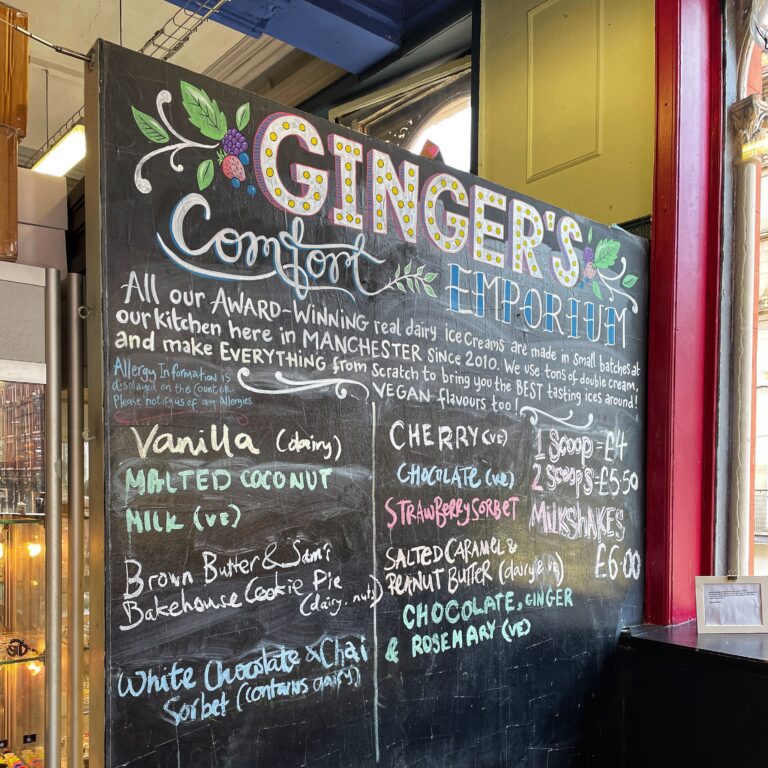 GINGER'S
Comfort
EMPORIUM
All our AWARD-WINNING real dairy ice creams are made in small batches at
our kitchen here in MANCHESTER since 2010. We use tons of double cream,
and make EVERYTHING from scratch to bring you the BEST tasting ices around!
VEGAN flavours too!
Allergy Information is
displayed on the counter.
Please notify us of any allergies
Vanilla (dairy)
MALTED COCONUT
MILK (VE)
Brown Butter & Sam's
Bakehouse Cookie Pie
(dairy. nuts)
White Chocolate & Chai
Sorbet (contains dairy)
CHERRY (VE)
CHOCOLATE (VE)
STRAWBERRY SORBET
SALTED CARAMEL &
PEANUT BUTTER (dairy & ve)
CHOCOLATE, GINGER
& ROSEMARY (VE)
1 SCOOP = £4
2 SCOOPS = £5.50
MILKSHAKES
£6.00